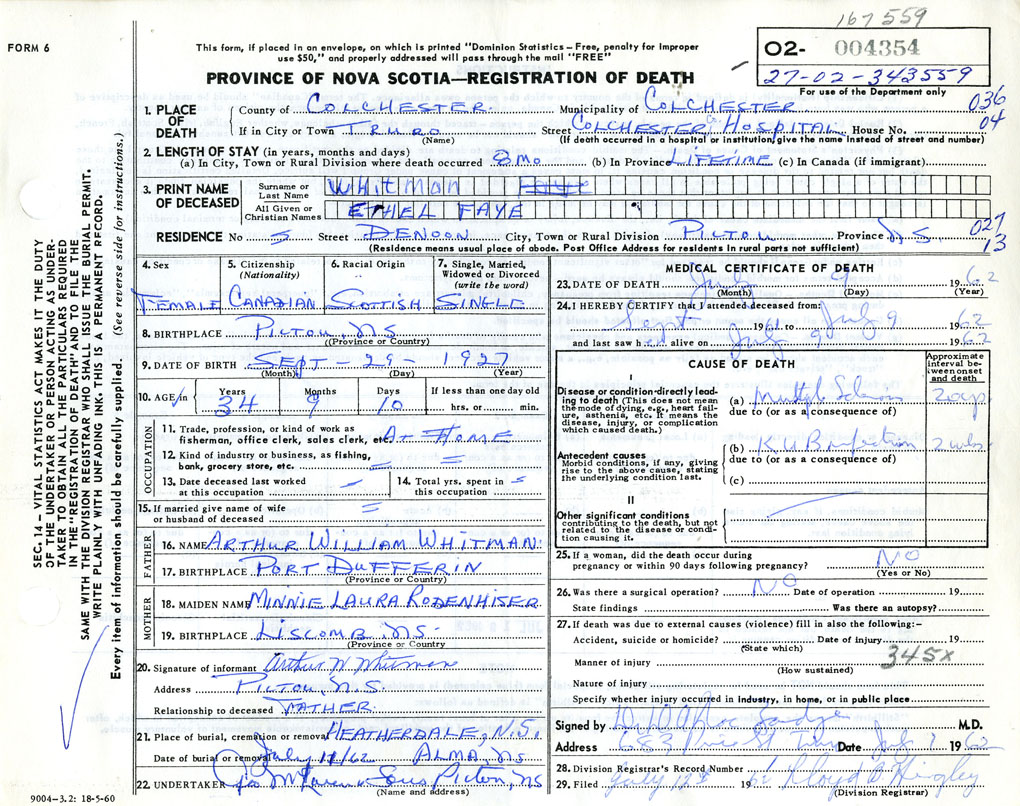 167559
FORM 6
This form, if placed in an envelope, on which is printed "Dominion Statistics – Free, penalty for improper
use $50," and properly addressed will pass through the mail "FREE"
O2- 004354
27-02-343559
For use of the Department only
PROVINCE OF NOVA SCOTIA—REGISTRATION OF DEATH
036
04
1. PLACE OF DEATH
County of COLCHESTER Municipality of COLCHESTER
If in City or Town TRURO Street COLCHESTER Co. HOSPITAL House No.
(Name) (If death occurred in a hospital or institution, give the name instead of street and number)
2. LENGTH OF STAY (in years, months and days)
(a) In City, Town or Rural Division where death occurred 8 MO (b) In Province LIFETIME (c) In Canada (if immigrant)
3. PRINT NAME OF DECEASED
Surname or Last Name WHITMAN Faye
All Given or Christian Names ETHEL FAYE
RESIDENCE No 5 Street DENOON City, Town or Rural Division PICTOU Province N.S.
(Residence means usual place of abode. Post Office Address for residents in rural parts not sufficient)
027
13
4. Sex FEMALE
5. Citizenship (Nationality) CANADIAN
6. Racial Origin SCOTTISH
7. Single, Married, Widowed or Divorced (write the word) SINGLE
8. BIRTHPLACE PICTOU, NS
(Province or Country)
9. DATE OF BIRTH SEPT - 29 - 1927
(Month) (Day) (Year)
10. AGE in Years 34 Months 9 Days 10 If less than one day old hrs. or min.
OCCUPATION
11. Trade, profession, or kind of work as fisherman, office clerk, sales clerk, etc. AT HOME
12. Kind of industry or business, as fishing, bank, grocery store, etc.
13. Date deceased last worked at this occupation
14. Total yrs. spent in this occupation
15. If married give name of wife or husband of deceased
FATHER
16. NAME ARTHUR WILLIAM WHITMAN
17. BIRTHPLACE PORT DUFFERIN
(Province or Country)
MOTHER
18. MAIDEN NAME MINNIE LAURA RODENHISER
19. BIRTHPLACE LISCOMB, NS.
(Province or Country
20. Signature of informant Arthur W Whitman
Address PICTOU, N.S.
Relationship to deceased FATHER
21. Place of burial, cremation or removal HEATHERDALE, N.S.
Date of burial or removal July 11/62 ALMA, NS
22. UNDERTAKER McLaren & Sons Pictou, NS
(Name and address)
9004–3.2: 18-5-60
MEDICAL CERTIFICATE OF DEATH
23. DATE OF DEATH July 9 1962
(Month) (Day) (Year)
24. I HEREBY CERTIFY that I attended deceased from:
Sept 1961 to July 9 1962
and last saw her alive on July 9 1962
CAUSE OF DEATH
Approximate interval between onset and death
I
Disease or condition directly leading to death (This does not mean the mode of dying, e.g., heart failure, asthenia, etc. It means the disease, injury, or complication which caused death.)
(a)
due to (or as a consequence of)
Antecedent causes
Morbid conditions, if any, giving rise to the above cause, stating the underlying condition last.
(b) infection 2 wks
due to (or as a consequence of)
(c)
II
Other significant conditions
contributing to the death, but not related to the disease or condition causing it.
25. If a woman, did the death occur during pregnancy or within 90 days following pregnancy? NO
(Yes or No)
26. Was there a surgical operation? NO Date of operation 19
State findings Was there an autopsy?
27. If death was due to external causes (violence) fill in also the following:–
Accident, suicide or homicide? Date of injury 19
(State which)
345x
Manner of injury
(How sustained)
Nature of injury
Specify whether injury occurred in industry, in home, or in public place
Signed by M.D.
Address Date 1962
28. Division Registrar's Record Number
29. Filed July 12th 62 Lloyd
(Division Registrar)
SEC. 14 – VITAL STATISTICS ACT MAKES IT THE DUTY
OF THE UNDERTAKER OR PERSON ACTING AS UNDER-
TAKER TO OBTAIN ALL THE PARTICULARS REQUIRED
IN THE "REGISTRATION OF DEATH" AND TO FILE THE
SAME WITH THE DIVISION REGISTRAR WHO SHALL ISSUE THE BURIAL PERMIT.
WRITE PLAINLY WITH UNFADING INK. THIS IS A PERMANENT RECORD.
Every item of information should be carefully supplied. (See reverse side for instructions.)